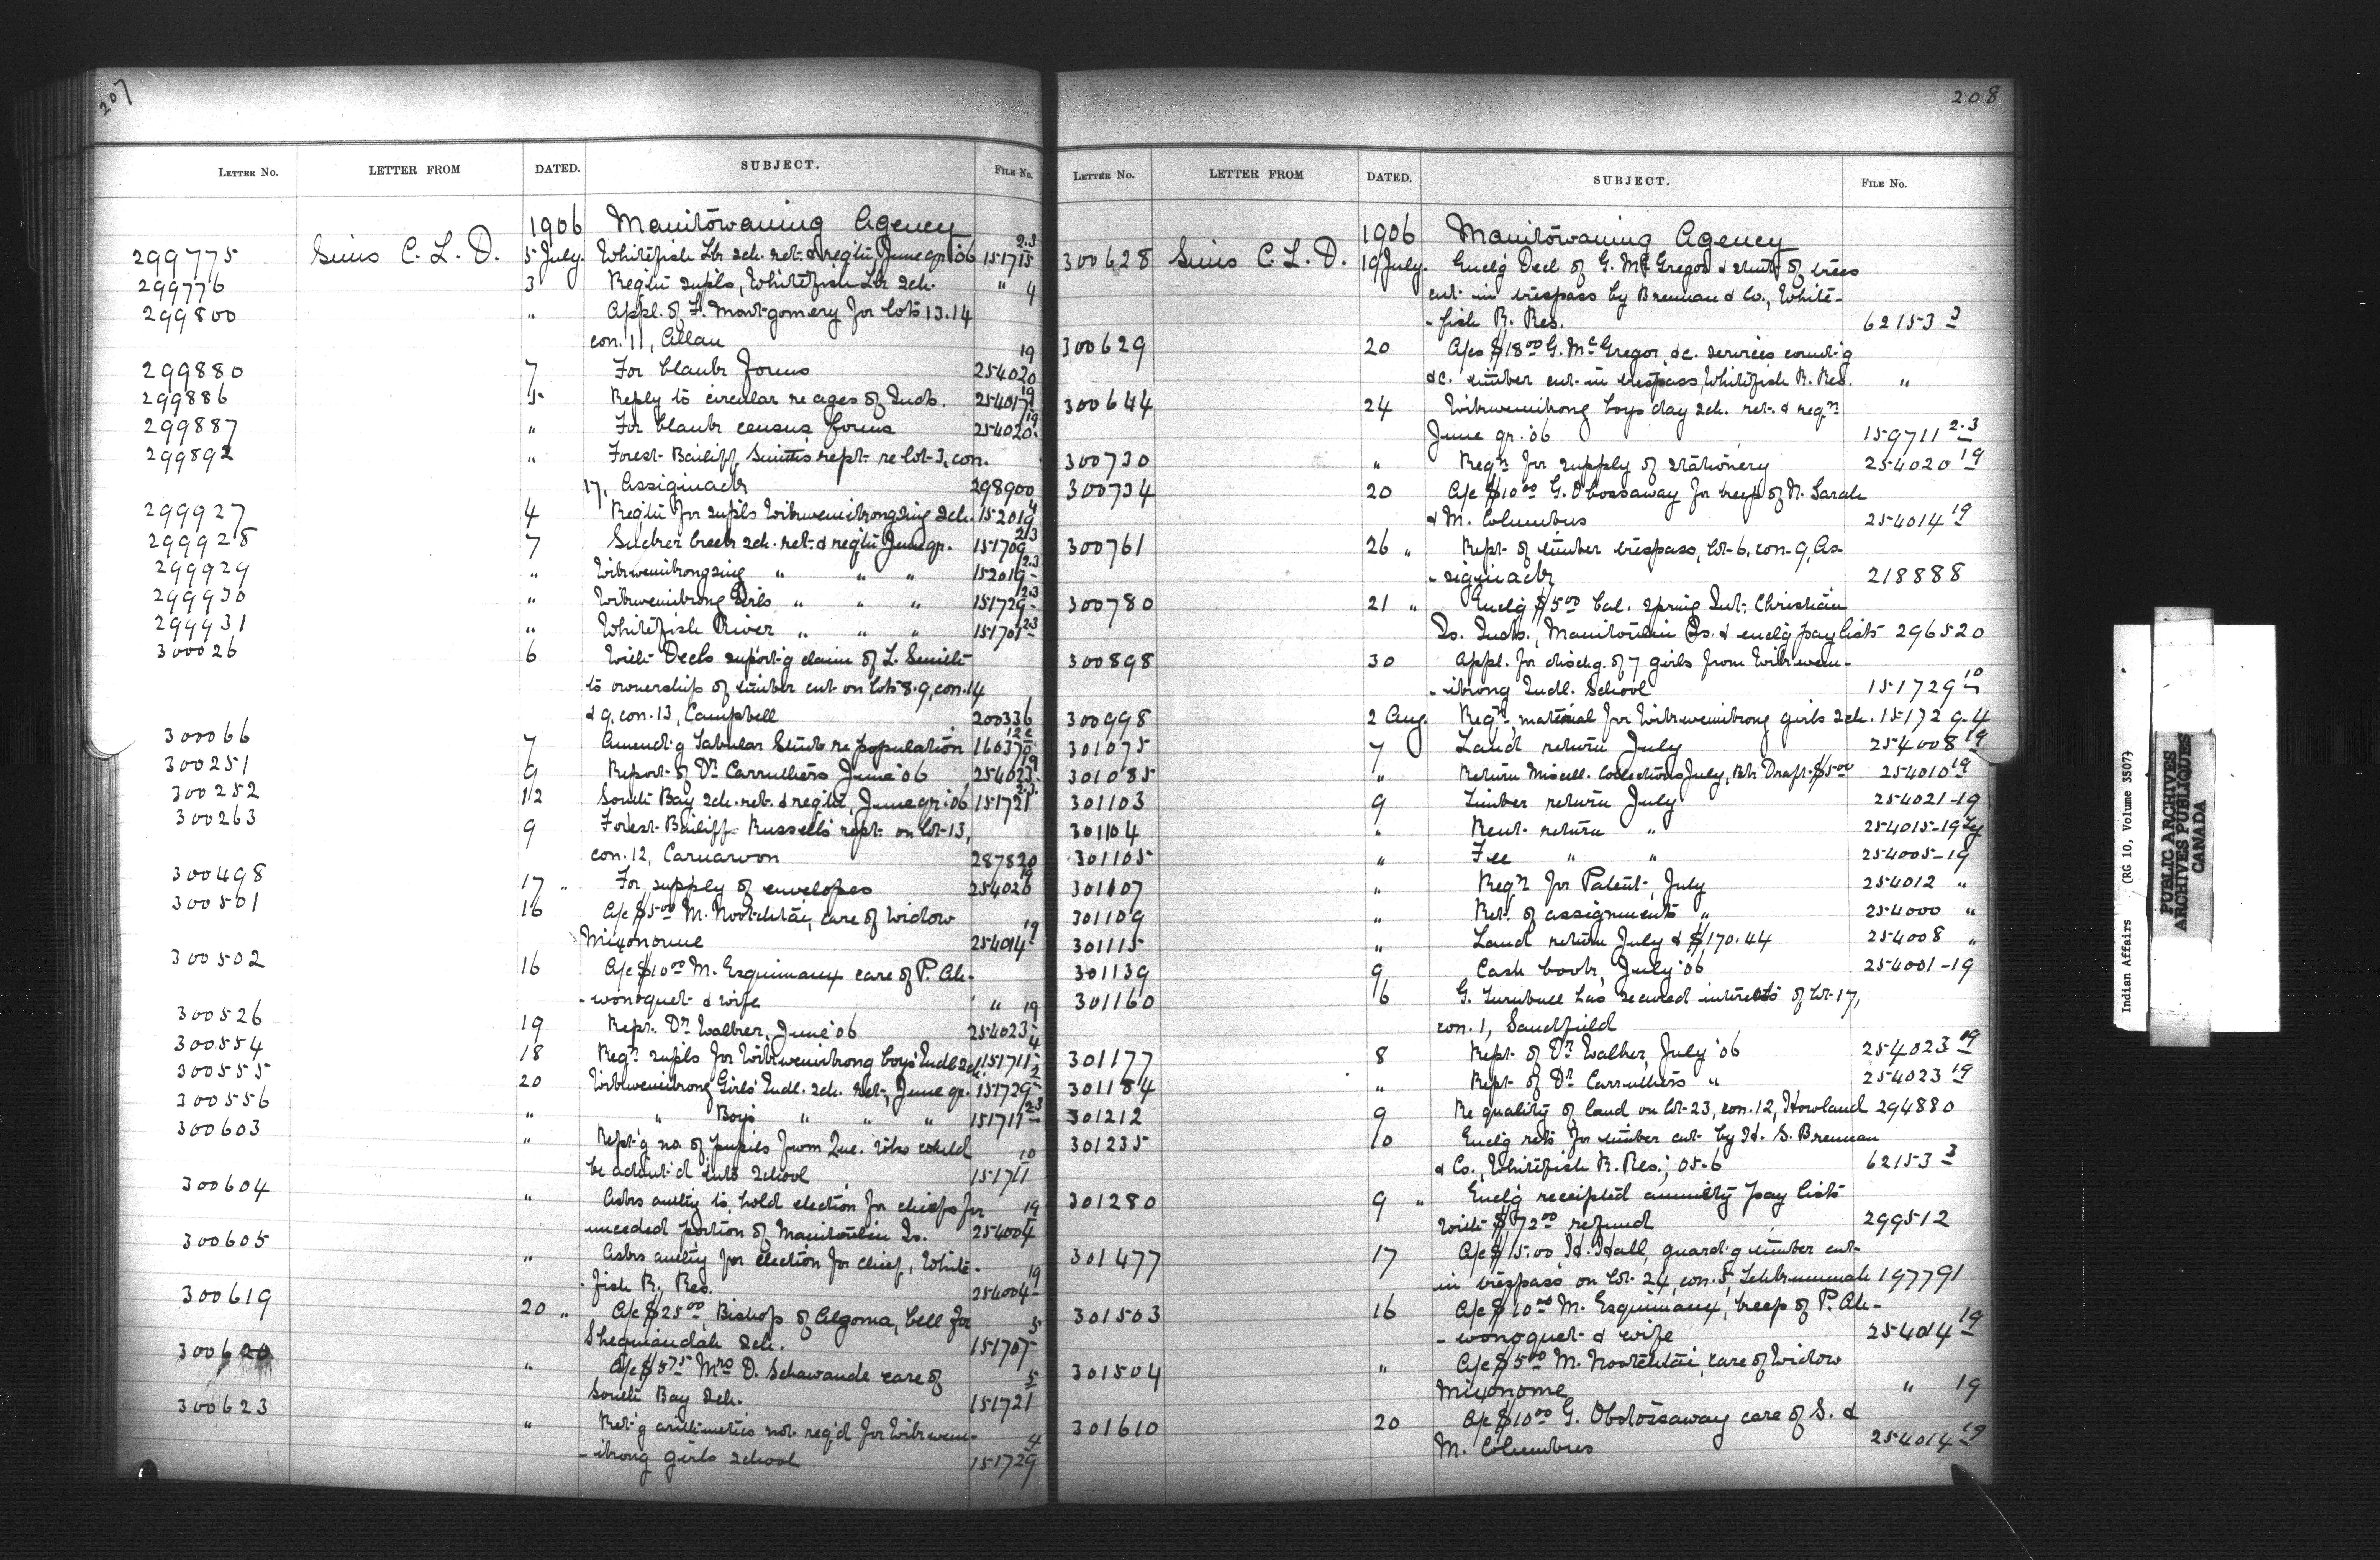 207
LETTER NO. LETTER FROM DATED. SUBJECT. FILE NO.
1906 Manitowaning Agency
299775 Sims C. L. D. 5 July. Whitefish Lk sch. ret. & reg'tn June qr. '06 151715 2.3
299776 3 Reqtn supls, Whitefish Lk sch. " 4
299800 " Appl. of F. Montgomery for lots 13.14
con. 11, Allan
299880 7 For blank forms 254020 19
299886 5 Reply to circular re ages of Inds. 254017 19
299887 " For blank census forms 254020 19
299892 " Forest Bailiff, Smith's rept. re lot 3, con.
17, Assiginack 298900
299927 4 Reqtn for supls Wikwemikongsing sch. 152019 4
299928 7 Sucker Creek sch. ret. & reqtn June qr. 151709 2.3
299929 " Wikwemikongsing " " " 152019 2.3
299930 " Wikwemikong Girls " " " 151729 2.3
299931 " Whitefish River " " " 151701 2.3
300026 6 With Decls support'g claim of L. Smith
to ownership of timber cut on lots 8.9, con. 14
& 9, con. 13, Campbell 200336
300066 7 Amend'g Tabular Stmt re population 160370 12c
300251 9 Report of Dr. Carruthers June '06 254023 19
300252 12 South Bay sch. ret. & reqtn, June qr. '06 151721 2.3
300263 9 Forest Bailiff Russell's rept. on lot 13,
con. 12, Carnarvon 287820
300498 17 " For supply of envelopes 254026 19
300501 16 A/c $5.00 M. Nootchtai, care of widow
Mixonome 254014 19
300502 16 A/c $10.00 M. Esquimaux care of P. Ah-
-wonoquet & wife " 19
300526 19 Rept. Dr. Walker, June '06 254023
300554 18 Reqn supls for Wikwemikong boys' Indl sch 151711 4
300555 20 Wikwemikong Girls' Indl. sch. ret., June qr. 151729 2
300556 " " Boys " " " 151711 2.3
300603 " Rept'g no. of pupils from Que. who could
be admit'd into school 151711 10
300604 " Asks auth'y to hold election for chiefs for
unceded portion of Manitoulin Is. 254004 19
300605 " Asks auth'y for election for chief, White-
-fish R. Res. 254004 19
300619 20 " A/c $25.00, Bishop of Algoma, bell for
Sheguiandah sch. 151707 5
300620 " A/c $5.75 Mrs D. Schawande care of
South Bay sch. 151721 5
300623 " Ret'g arithmetics not req'd for Wikwem-
-ikong girls school 151729 4
208
LETTER NO. LETTER FROM DATED. SUBJECT. FILE NO.
1906 Manitowaning Agency
300628 Sims C. L. D. 19 July. Encl'g Decl of G. McGregor & stmt of trees
cut in trespass by Brennan & Co., White-
-fish R. Res. 62153 3
300629 20 A/cs $18.00 G. McGregor, &c. services count'g
&c. timber cut in trespass, Whitefish R. Res. "
300644 24 Wikwemikong boys day sch. ret. & reqn
June qr. '06 159711 2.3
300730 " Reqn for supply of stationery 254020 19
300734 20 A/c $10.00 G. Obossaway for keep of N. Sarah
& M. Columbus 254014 19
300761 26 " Rept. of timber trespass, lot 6, con. 9, As-
-siginack 218888
300780 21 " Encl'g $5.00 bal. spring Int. Christian
Is. Inds., Manitoulin Is. & encl'g pay lists 296520
300898 30 Appl. for dischg. of 7 girls from Wikwem-
-ikong Indl. School 151729 10
300998 2 Aug. Reqn material for Wikwemikong girls sch. 151729-4
301075 7 Land return July 254008 19
301085 " Return Miscell. Collections July, Bk Draft $5.00 254010 19
301103 9 Timber return July 254021-19
301104 " Rent return " 254015-19
301105 " Fee " " 254005-19
301107 " Reqn for Patent, July 254012 "
301109 " Ret. of assignments " 254000 "
301115 " Land return July & $170.44 254008 "
301139 9 Cash book, July '06 254001-19
301160 6 G. Turnbull has secured interests of lot 17,
con. 1, Sandfield
301177 8 Rept. of Dr. Walker, July '06 254023 19
301184 " Rept. of Dr. Carruthers " 254023 19
301212 9 Re quality of land on lot 23, con. 12, Howland 294880
301235 10 Encl'g rets for timber cut by H. S. Brennan
& Co., Whitefish R. Res., 05-6 62153 3
301280 9 " Encl'g receipted annuity pay lists
with $72.00 refund 299512
301477 17 A/c $15.00 H. Hall, guard'g timber cut
in trespass on lot 24, con. 5, Tehkummah 197791
301503 16 A/c $10.00 M. Esquimaux, keep of P. Ah-
-wonoquet & wife 254014 19
301504 " A/c $5.00 M. Nootchtai, care of widow
Mixonome " 19
301610 20 A/c $10.00 G. Obotossaway care of S. &
M. Columbus 254014 19
Indian Affairs (RG 10, Volume 3507)
PUBLIC ARCHIVES
ARCHIVES PUBLIQUES
CANADA